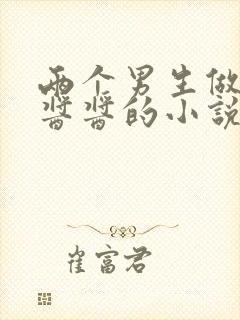 两个男生做
酱酱的小说
崔富君